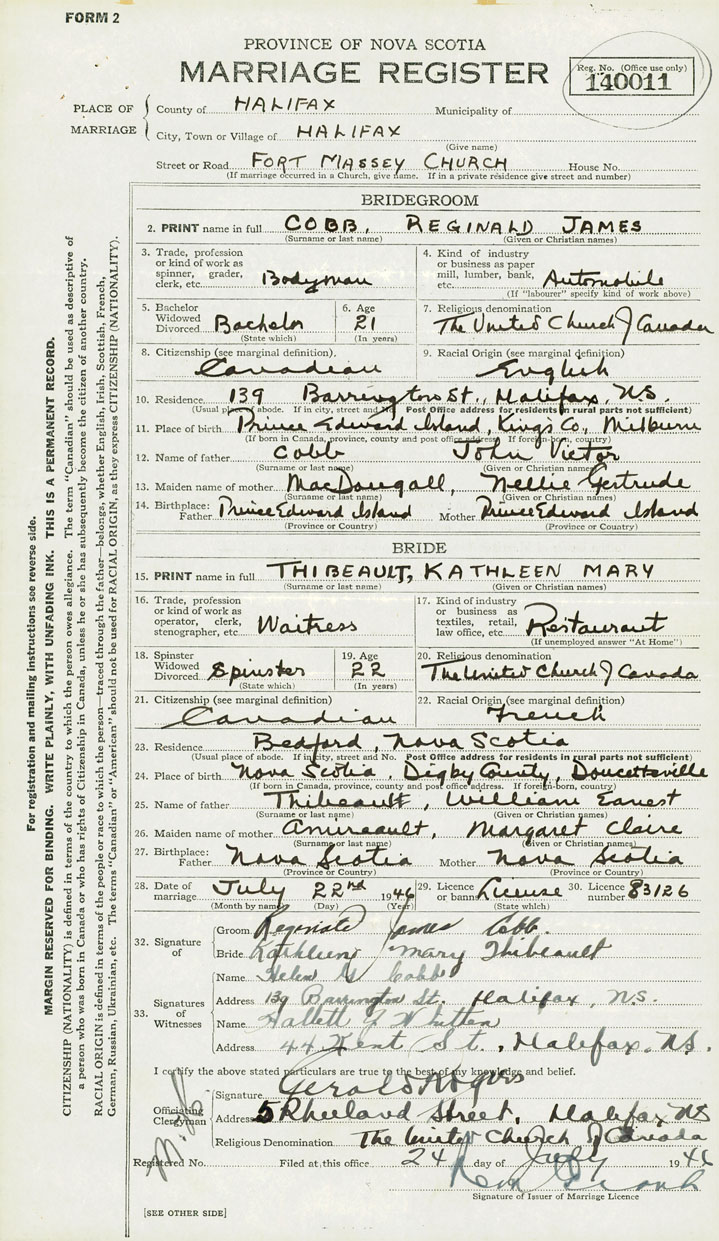 FORM 2
PROVINCE OF NOVA SCOTIA
MARRIAGE REGISTER
Reg. No. (Office use only)
140011
PLACE OF MARRIAGE
County of HALIFAX Municipality of
City, Town or Village of HALIFAX
(Give name)
Street or Road FORT MASSEY CHURCH House No.
(If marriage occurred in a Church, give name. If in a private residence give street and number)
BRIDEGROOM
2. PRINT name in full COBB, REGINALD JAMES
(Surname or last name) (Given or Christian names)
3. Trade, profession or kind of work as spinner, grader, clerk, etc. Bodyman
4. Kind of industry or business as paper mill, lumber, bank, etc. Automobile
(If "labourer" specify kind of work above)
5. Bachelor Widowed Divorced Bachelor
(State which)
6. Age 21
(In years)
7. Religious denomination
The United Church of Canada
8. Citizenship (see marginal definition).
Canadian
9. Racial Origin (see marginal definition)
English
10. Residence 139 Barrington St., Halifax, N.S.
(Usual place of abode. If in city, street and No. Post Office address for residents in rural parts not sufficient)
11. Place of birth Prince Edward Island, Kings Co., Milburn
(If born in Canada, province, county and post office address. If foreign-born, country)
12. Name of father Cobb John Victor
(Surname or last name) (Given or Christian names)
13. Maiden name of mother MacDougall, Nellie Gertrude
(Surname or last name) (Given or Christian names)
14. Birthplace: Father Prince Edward Island Mother Prince Edward Island
(Province or Country) (Province or Country)
BRIDE
15. PRINT name in full THIBEAULT, KATHLEEN MARY
(Surname or last name) (Given or Christian names)
16. Trade, profession or kind of work as operator, clerk, stenographer, etc. Waitress
17. Kind of industry or business as textiles, retail, law office, etc. Restaurant
(If unemployed answer "At Home")
18. Spinster Widowed Divorced Spinster
(State which)
19. Age 22
(In years)
20. Religious denomination
The United Church of Canada
21. Citizenship (see marginal definition)
Canadian
22. Racial Origin (see marginal definition)
French
23. Residence Bedford, Nova Scotia
(Usual place of abode. If in city, street and No. Post Office address for residents in rural parts not sufficient)
24. Place of birth Nova Scotia, Digby County, Doucetteville
(If born in Canada, province, county and post office address. If foreign-born, country)
25. Name of father Thibeault, William Earnest
(Surname or last name) (Given or Christian names)
26. Maiden name of mother Amireault, Margaret Claire
(Surname or last name) (Given or Christian names)
27. Birthplace: Father Nova Scotia Mother Nova Scotia
(Province or Country) (Province or Country)
28. Date of marriage July 22nd 1946
(Month by name) (Day) (Year)
29. Licence or banns License
(State which)
30. Licence number 83126
32. Signature of
Groom Reginald James Cobb.
Bride Kathleen Mary Thibeault
33. Signatures of Witnesses
Name Helen G Cobb
Address 139 Barrington St. Halifax, N.S.
Name Hallett G Whitten
Address 44 Kent St., Halifax, N.S.
I certify the above stated particulars are true to the best of my knowledge and belief.
Officiating Clergyman
Signature Gerald Rogers
Address 5 Street, Halifax NS
Religious Denomination The United Church of Canada
Registered No. Filed at this office 24 day of July 1946
Signature of Issuer of Marriage Licence
[SEE OTHER SIDE]
For registration and mailing instructions see reverse side.
MARGIN RESERVED FOR BINDING. WRITE PLAINLY, WITH UNFADING INK. THIS IS A PERMANENT RECORD.
CITIZENSHIP (NATIONALITY) is defined in terms of the country to which the person owes allegiance. The term "Canadian" should be used as descriptive of
a person who was born in Canada or who has rights of Citizenship in Canada, unless he or she has subsequently become the citizen of another country.
RACIAL ORIGIN is defined in terms of the people or race to which the person—traced through the father—belongs, whether English, Irish, Scottish, French,
German, Russian, Ukrainian, etc. The terms "Canadian" or "American" should not be used for RACIAL ORIGIN, as they express CITIZENSHIP (NATIONALITY).